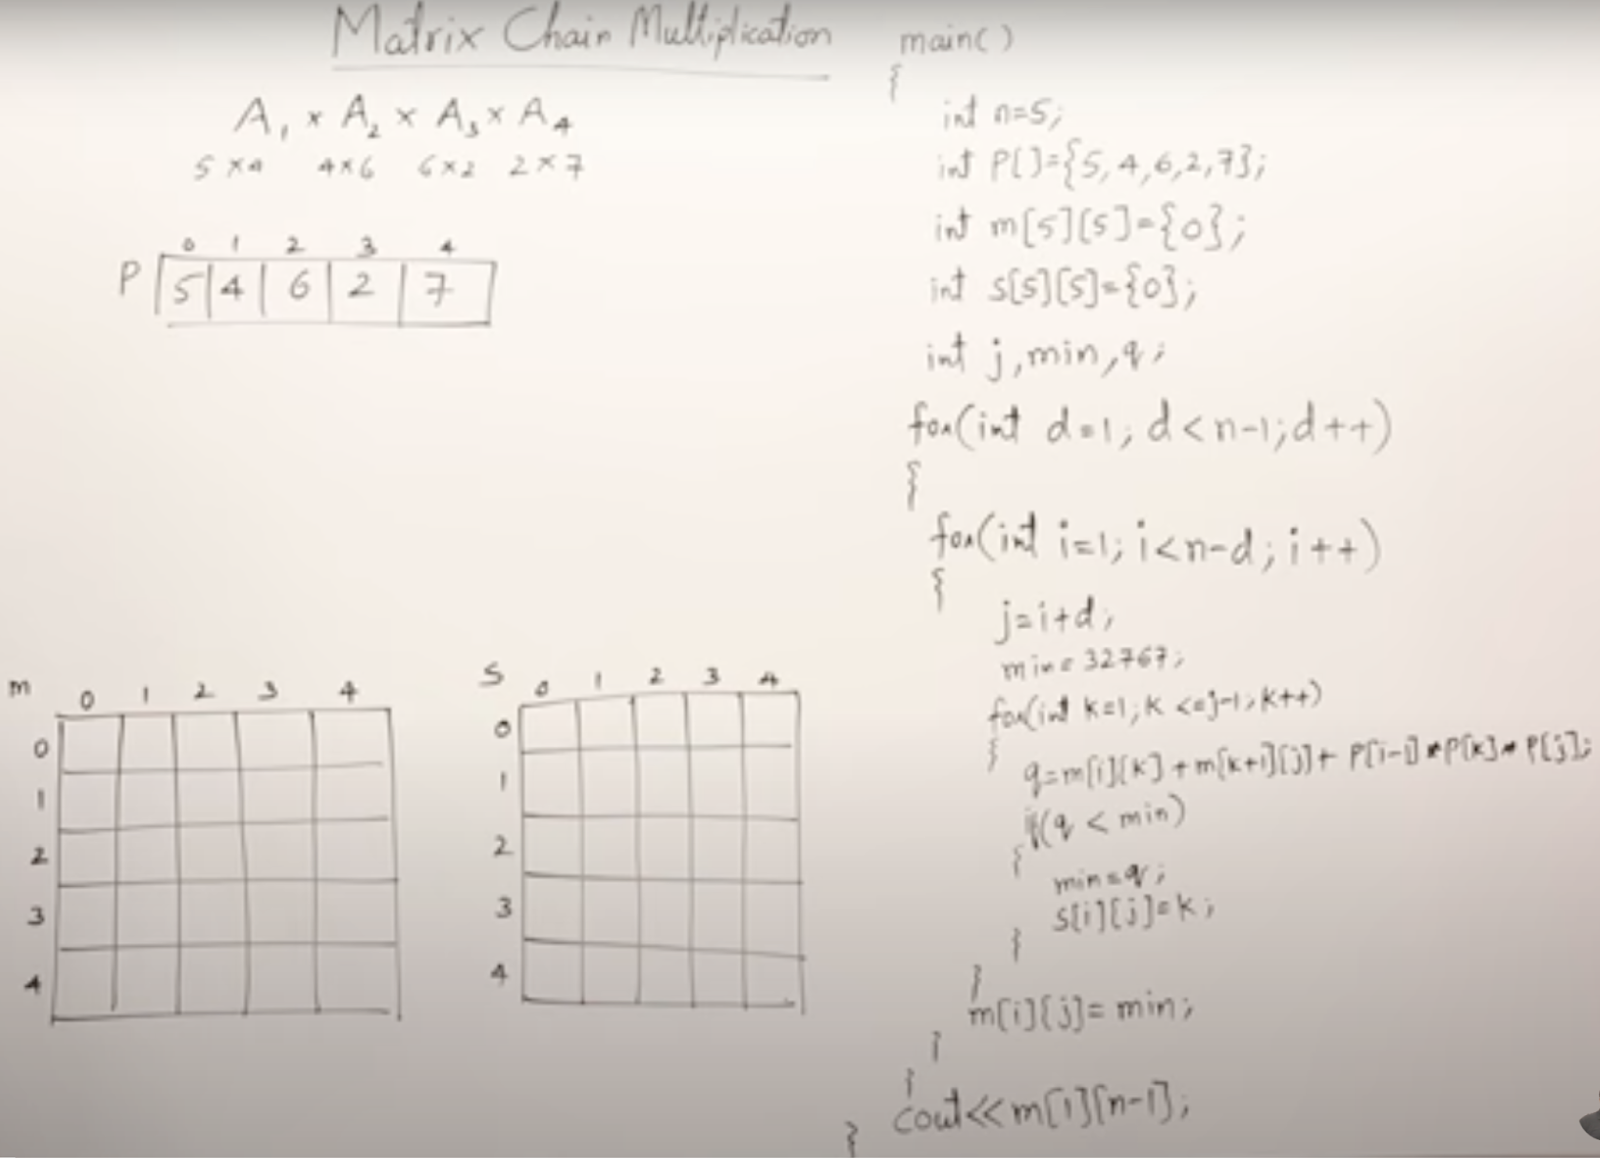 Matrix Chain Multiplication
A₁ × A₂ × A₃ × A₄
5×4 4×6 6×2 2×7
0 1 2 3 4
P 5 4 6 2 7
m 0 1 2 3 4
0
1
2
3
4
S 0 1 2 3 4
0
1
2
3
4
main()
{
int n=5;
int P[]={5,4,6,2,7};
int m[5][5]={0};
int s[5][5]={0};
int j,min,q;
for(int d=1; d<n-1;d++)
{
for(int i=1; i<n-d; i++)
{
j=i+d;
min=32767;
for(int k=1;k<=j-1;k++)
{
q=m[i][k]+m[k+1][j]+P[i-1]*P[k]*P[j];
if(q<min)
{
min=q;
s[i][j]=k;
}
}
m[i][j]=min;
}
}
cout<<m[1][n-1];
}